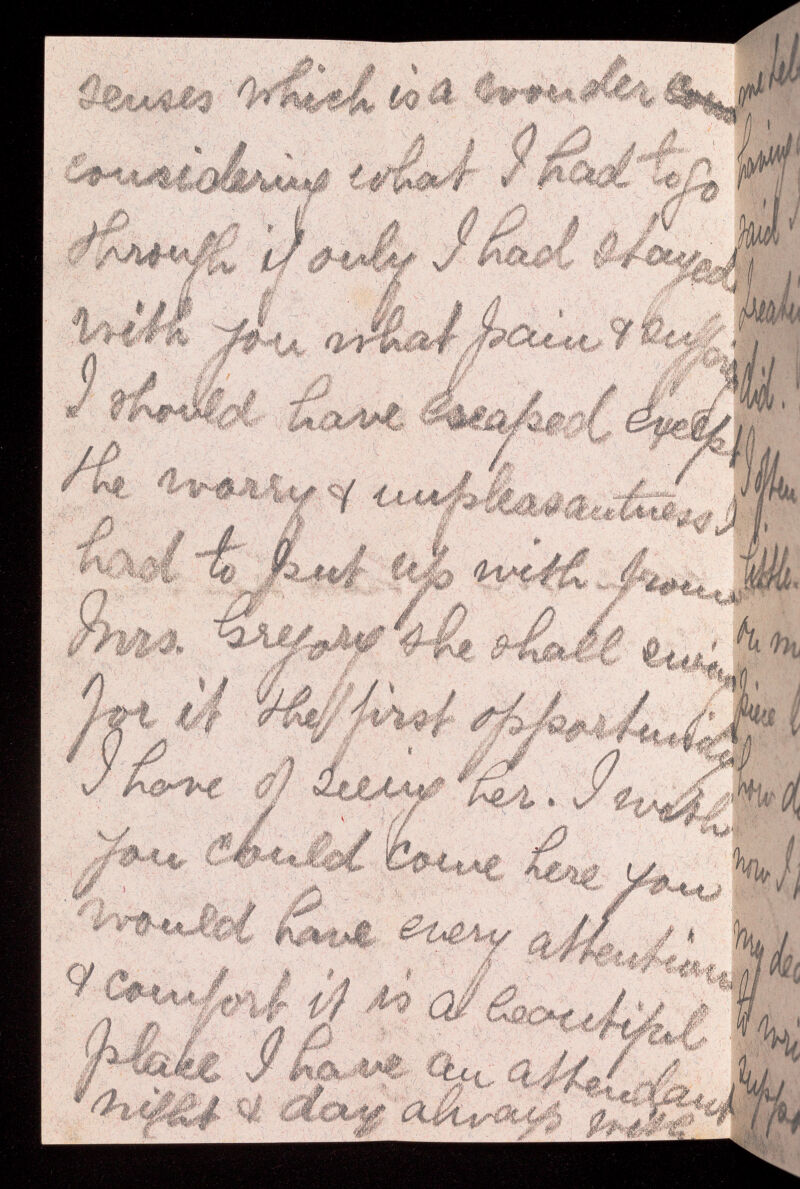 senses which is a wonder
considering what I had to go
through if only I had stayed
with you what pain &
I should have escaped except
the worry & unpleasantness I
had to put up with from
Mrs. Gregory she shall
for it the first opportunity
I have of seeing her. I wish
you could come here you
would have every attention
& comfort it is a beautiful
place I have an attendant
night & day always with
having
said
did.
I often
little.
on
piece
how
now I
my